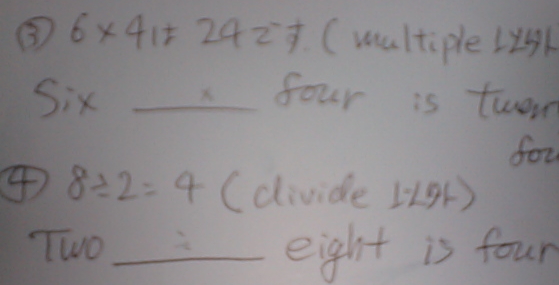 ③ 6×4は 24です. ( multiple 以外
Six × four is twen
fou
④ 8÷2=4 (divide 以外)
Two ÷ eight is four